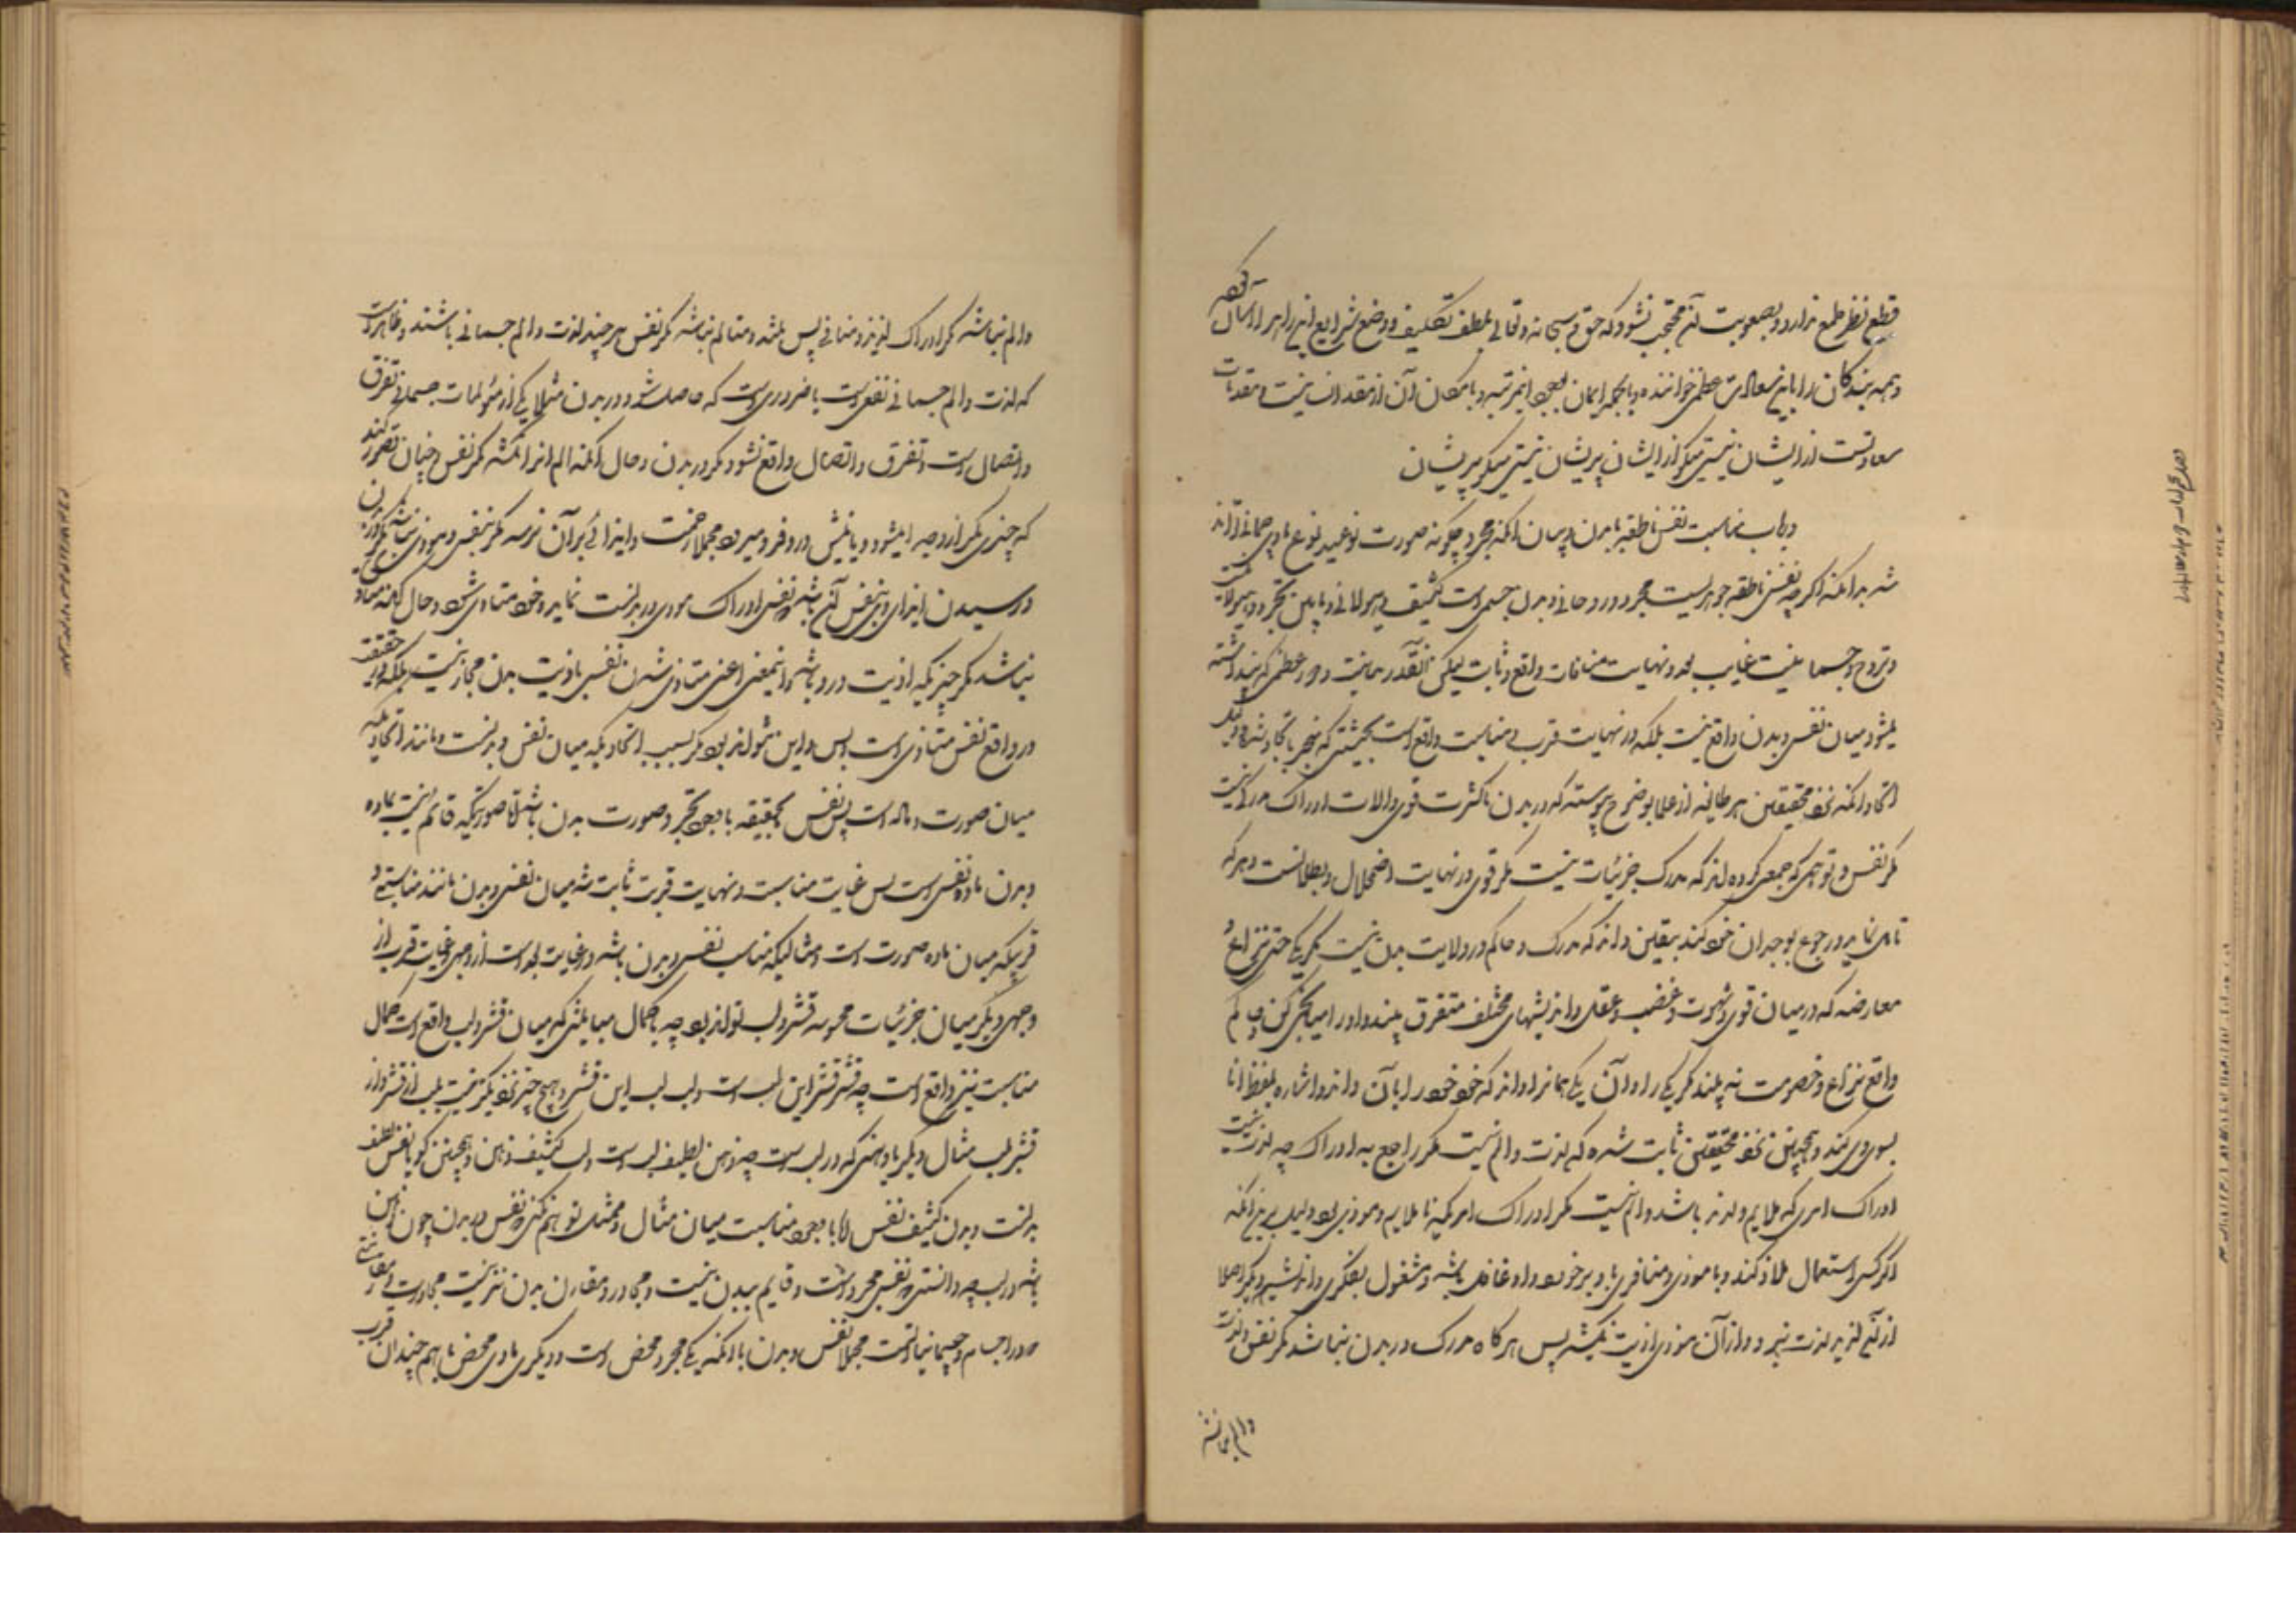 قطع نظر طمع ندارد و بصعوبت آن محتجب نشود که حق سبحانه و تعالی بلطف تکلیف و وضع شرایع انبیا را ارسال کرده
و همه بندکان را باین سعادت عظمی خوانده و بالجمله ایمان بوجود این مرتبه و بامکان آن از مقدمات
سعادتست از ایشان نیستی میکو از ایشان پریشان نیستی میکو پریشان
در باب مناسبت نفس ناطقه با بدن و بیان آنکه مجرد چکونه صورت نوعیه نوع مادی جسمانی تواند
شد بدانکه اکرچه نفس ناطقه جوهریست مجرد و روحانی و بدن جسمی است کثیف و هیولانی و مابین تجرد و هیولانیت
و تروح و جسمانیت غایت بعد و نهایت منافات واقع و ثابت لیکن آنقدر مباینت و دوری عظمی که پنداشته
میشود میان نفس و بدن واقع نیست بلکه در نهایت قرب و مناسبت واقع است بحیثیتی که منجر باتحاد شده و دلیل
اتحاد آنکه نزد محققین هر طایفه از علما بوضوح پیوسته که در بدن با کثرت قوی و آلات ادراک مدرکی نیست
مکر نفس و توهمی که جمعی کرده اند که مدرک جزئیات نیست مکر قوی در نهایت اضمحلال و بطلانست و هر که
تامل نماید و رجوع بوجدان خود کند بیقین داند که مدرک و حاکم در ولایت بدن نیست مکر یکی حتی نزاع و
معارضه که در میان قوی شهوت و غضب و عقل و اندیشهای مختلف متفرق بیند و او را میانجی کن و حاکم
واقع نزاع و خصومت نه بیند مکر یکی را و آن یکی همانرا داند که خود خود را بآن داند و اشاره بلفظ انا
بسوی وی کند و همچنین نزد محققین ثابت شده که لذت و الم نیست مکر راجع به ادراک چه لذت نیست
ادراک امری که ملایم و لذیذ باشد و الم نیست مکر ادراک امریکه ناملایم و موذی بود و دلیل برین آنکه
اکر کسی استعمال ملاذ کند و یا موذی و منافری باو برخورد و او غافل باشد و مشغول بفکری و اندیشه دیکر اصلا
از آن لذیذ لذت نبرد و از آن موذی اذیت نکشد پس هرکاه مدرک در بدن نباشد مکر نفس و لذت
و الم نباشد
والم نباشد مکر ادراک لذیذ و منافی پس ملتذ و متالم نباشد مکر نفس هر چند لذت و الم جسمانی باشند و ظاهر است
که لذت و الم جسمانی نفس است با ضروریست که حاصل شود در بدن مثلا یکی از مؤلمات جسمانی تفرق
و اتصال است و تفرق و اتصال واقع نشود مکر در بدن و حال آنکه الم انرا نکشد مکر نفس و چنان تصور کند
که چیزی مکر از وجدا میشود و یا نیش در وی فرو میرود مجملا زخمت و ایذائی بر آن نرسد مکر بنفس و موذی نباشد مکر در بدن
و رسیدن ایذای وی بنفس آن باشد که نفس ادراک موذی در بدنست نماید و خود متاذی شود و حال آنکه متاذی
نباشد مکر چیزیکه اذیت در و باشد و اینمعنی اعنی متاذی شدن نفس باذیت بدن مجاز نیست بلکه در حقیقت
در واقع نفس متاذی است و بس و این نتواند بود مکر بسبب اتحادیکه میان نفس و بدنست مانند اتحادیکه
میان صورت و ماده است پس نفس بحقیقه با وجود تجرد صورت بدن باشد الا صورتیکه قائم نیست بماده
و بدن ماده نفس است پس غایت مناسبت و نهایت قربت ثابت شد میان نفس و بدن مانند مناسبتی و
قربیکه میان ماده و صورت است و مثالیکه مناسب نفس و بدن باشد و غایت بعد است از وجهی و غایت قرب از
وجهی دیکر میان جزئیات محسوسه قشر و لب تواند بود چه با کمال مباینتی که میان قشر و لب واقع است کمال
مناسبت نیز واقع است چه قشر قشر این لب است و لب لب این قشر و هیچ چیز نزدیکتر نیست بلب از قشر و از
قشر بلب مثال دیکر با دهنی که در لب است چه دهن لطیف لب است و لب کثیف دهن و همچنین کویا نفس لطیف
بدنست و بدن کثیف نفس لکا با وجود مناسبت میان مثال و ممثل توهم نکنی که نفس در بدن چون دهن
باشد در لب چه دانستی که نفس مجرد است و قایم ببدن نیست و مجاور و مقارن بدن نیز نیست مجاورت و مقارنتی
که در اجسام و جسمانیاتست مجملا نفس و بدن با آنکه یکی مجرد محض است و دیکری مادی محض با هم چندان قرب